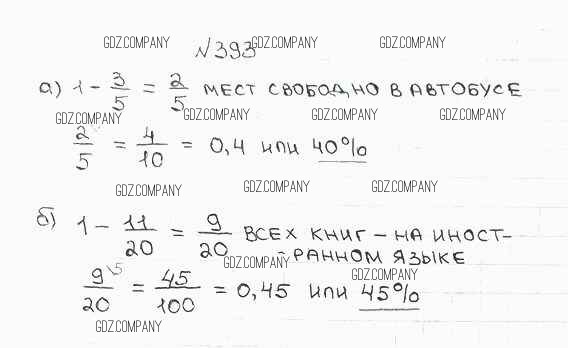 GDZ.COMPANY
№393 GDZ.COMPANY GDZ.COMPANY
а) 1 - 3/5 = 2/5 МЕСТ СВОБОДНО В АВТОБУСЕ
GDZ.COMPANY GDZ.COMPANY GDZ.COMPANY GDZ.COMPANY
2/5 = 4/10 = 0,4 или 40%
GDZ.COMPANY GDZ.COMPANY GDZ.COMPANY
б) 1 - 11/20 = 9/20 ВСЕХ КНИГ - НА ИНОСТ-
РАННОМ ЯЗЫКЕ
GDZ.COMPANY GDZ.COMPANY
9\5/20 = 45/100 = 0,45 или 45%
GDZ.COMPANY